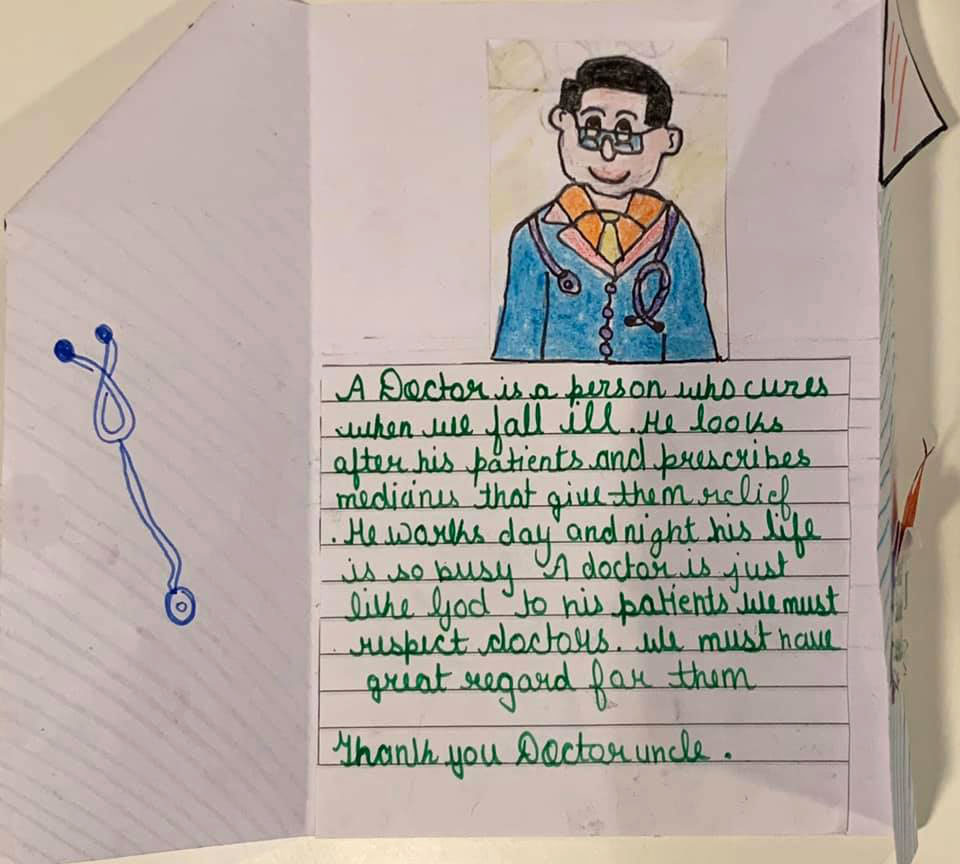 A Doctor is a person who cures
when we fall ill. He looks
after his patients and prescribes
medicines that give them relief
. He works day and night his life
is so busy A doctor is just
like God to his patients we must
respect doctors. we must have
great regard for them
Thank you Doctor uncle.